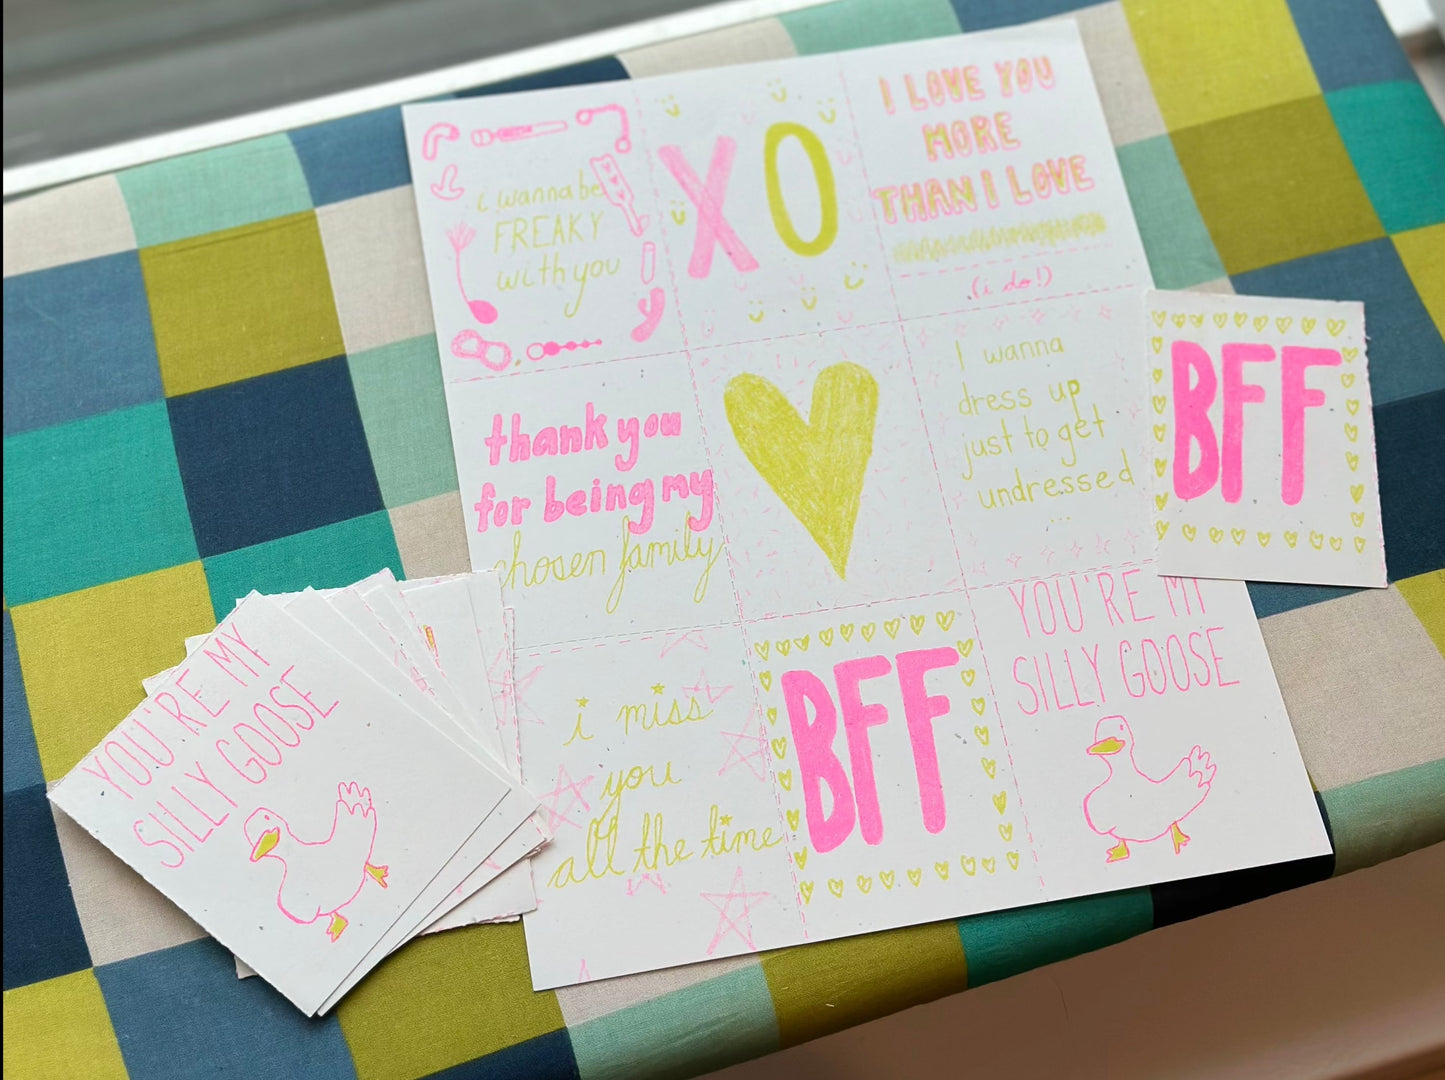 i wanna be
FREAKY
with you
XO
I LOVE YOU
MORE
THAN I LOVE
(i do!)
thank you
for being my
chosen family
I wanna
dress up
just to get
undressed
...
BFF
i miss
you
all the time
BFF
YOU'RE MY
SILLY GOOSE
YOU'RE MY
SILLY GOOSE